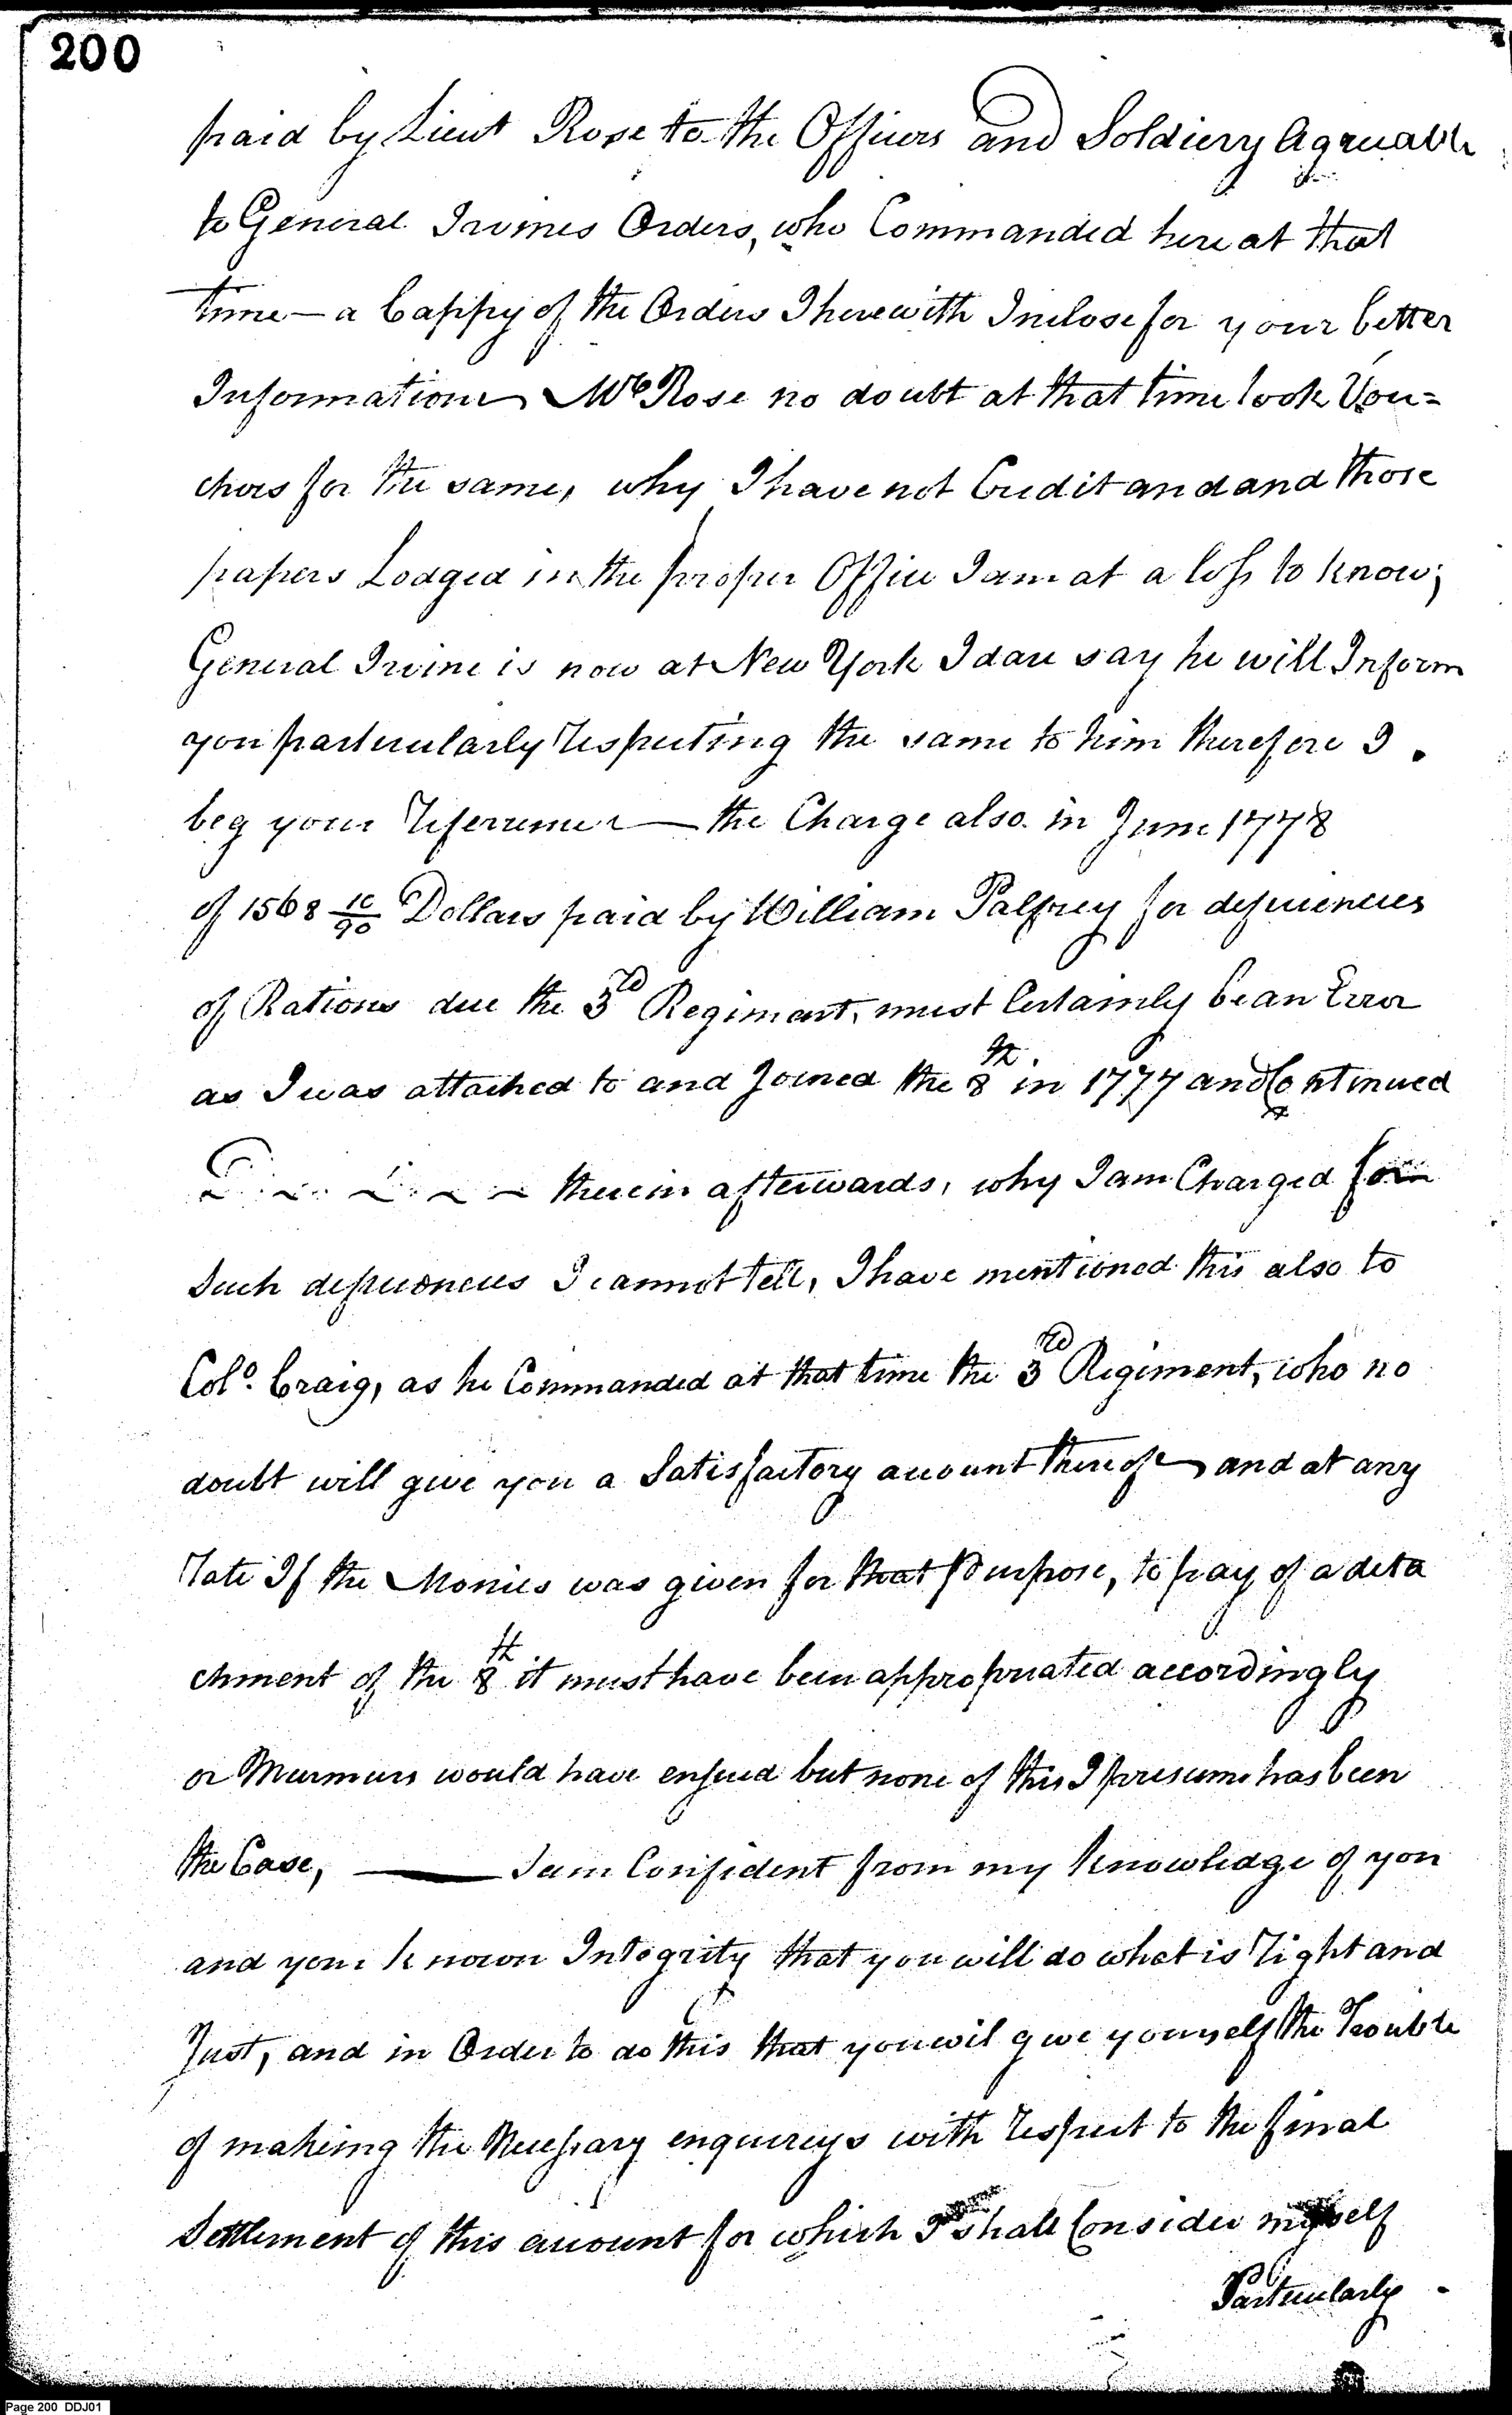 200
paid by Lieut Rose to the Officers and Soldiery Agreuable
to General Irvines Orders, who Commanded here at that
time — a Cappy of the Orders I herewith Inclose for your better
Information Mr Rose no doubt at that time took Vou=
chers for the same, why I have not Credit and and those
papers Lodged in the proper Office I am at a loss to know;
General Irvine is now at New York I dare say he will Inform
you particularly respecting the same to him therefore I
beg your referrence — the Charge also in June 1778
of 1568 10/90 Dollars paid by William Palfrey for deficiencies
of Rations due the 3rd Regiment, must Certainly be an Error
as I was attached to and Joined the 8th in 1777 and Continued
therein afterwards, why I am Charged for
Such deficiencies I cannot tell, I have mentioned this also to
Colo. Craig, as he Commanded at that time the 3rd Regiment, who no
doubt will give you a Satisfactory account thereof and at any
rate If the Monies was given for that Purpose, to pay of a deta
chment of the 8th it must have been appropriated accordingly
or Murmurs would have ensued but none of this I presume has been
the Case, — I am Confident from my Knowledge of you
and your known Integrity that you will do what is right and
Just, and in Order to do this that you wil give yourself the Trouble
of making the Necessary enquireys with respect to the final
Settlement of this account for which I shall Consider myself
Particularly
Page 200 DDJ01